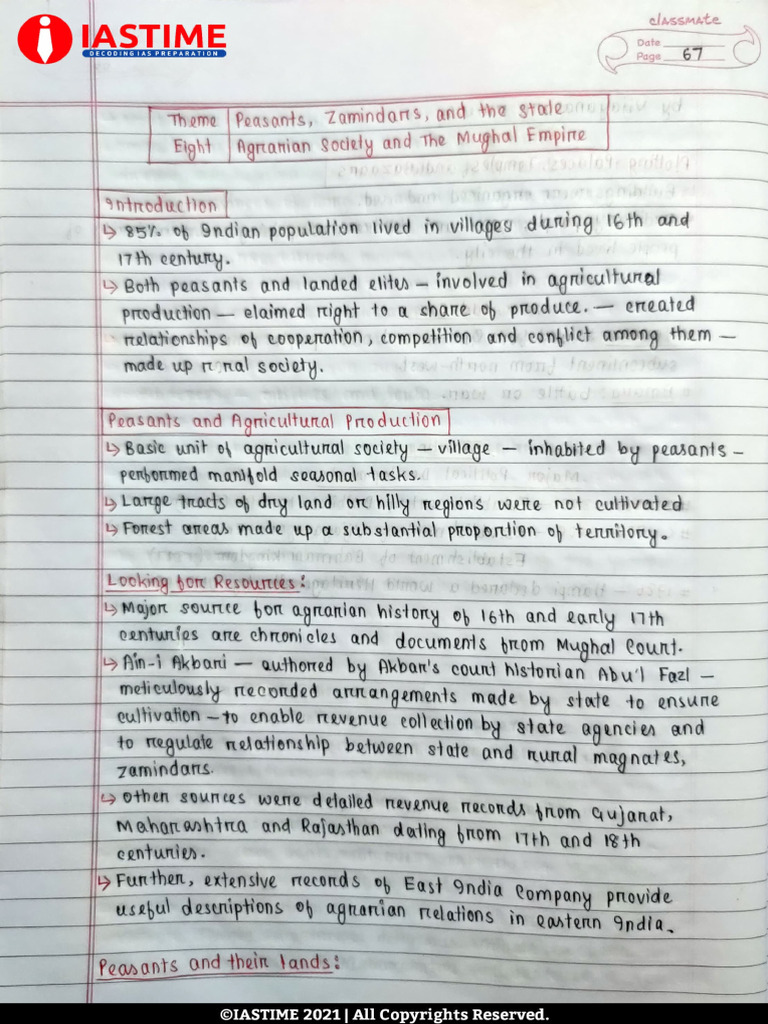 IASTIME
DECODING IAS PREPARATION
classmate
Date
Page 67
Theme Peasants, Zamindars, and the State
Eight Agrarian Society and The Mughal Empire
Introduction
↳ 85% of Indian population lived in villages during 16th and
17th century.
↳ Both peasants and landed elites – involved in agricultural
production – claimed right to a share of produce. – created
relationships of cooperation, competition and conflict among them –
made up rural society.
Peasants and Agricultural Production
↳ Basic unit of agricultural society – village – inhabited by peasants –
performed manifold seasonal tasks.
↳ Large tracts of dry land or hilly regions were not cultivated
↳ Forest areas made up a substantial proportion of territory.
Looking for Resources:
↳ Major source for agrarian history of 16th and early 17th
centuries are chronicles and documents from Mughal Court.
↳ Ain-i Akbari – authored by Akbar's court historian Abu'l Fazl –
meticulously recorded arrangements made by state to ensure
cultivation – to enable revenue collection by state agencies and
to regulate relationship between state and rural magnates,
zamindars.
↳ Other sources were detailed revenue records from Gujarat,
Maharashtra and Rajasthan dating from 17th and 18th
centuries.
↳ Further, extensive records of East India Company provide
useful descriptions of agrarian relations in eastern India.
Peasants and their lands:
©IASTIME 2021 | All Copyrights Reserved.